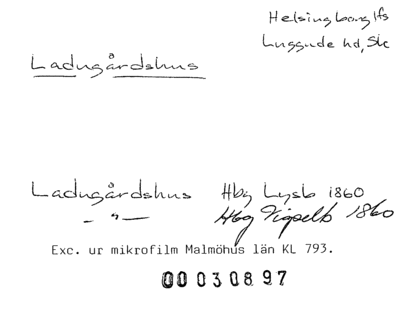 Helsingborg lfs
Luggude hd, Sk
Ladugårdshus
Ladugårdshus Hbg Lysb 1860
– " — Hbg Vigselb 1860
Exc. ur mikrofilm Malmöhus län KL 793.
00030897